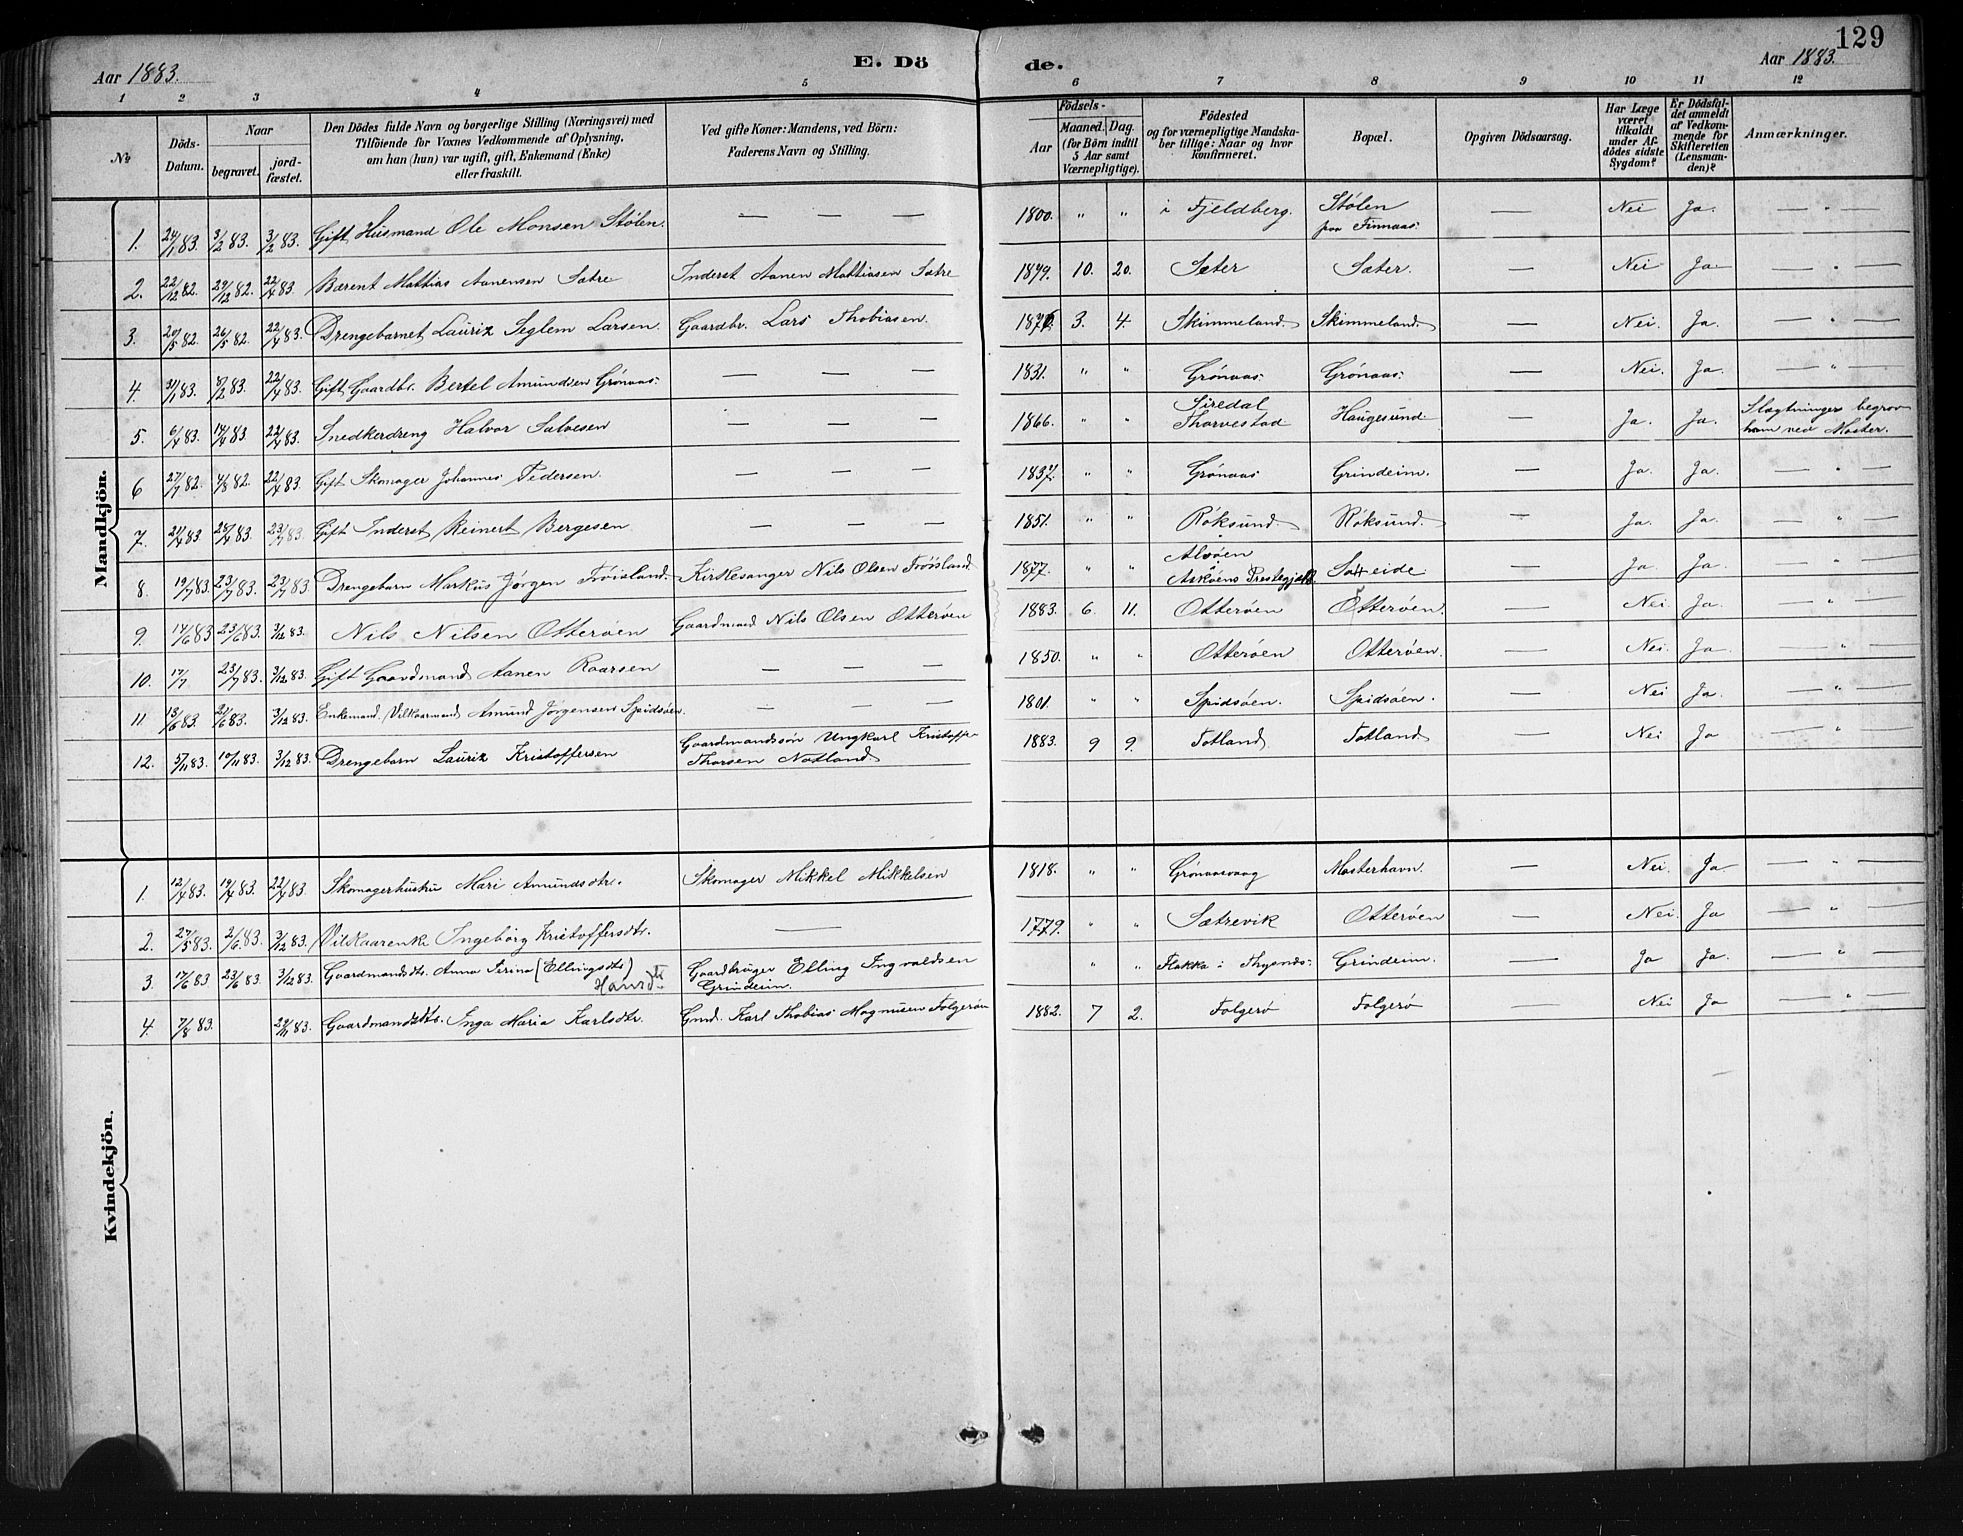 129
Aar 1883. E. Dö de. Aar 1883.
1 2 3 4 5 6 7 8 9 10 11 12
No
Döds-Datum.
Naar
begravet.
jord-fæstet.
Den Dödes fulde Navn og borgerlige Stilling (Næringsvei) med
Tilföiende for Voxnes Vedkommende af Oplysning,
om han (hun) var ugift, gift, Enkemand (Enke)
eller fraskilt.
Ved gifte Koner: Mandens, ved Börn:
Faderens Navn og Stilling.
Födsels-
Aar
Maaned. Dag.
(for Börn indtil
5 Aar samt
Værnepligtige).
Födested
og for værnepligtige Mandska-
ber tillige: Naar og hvor
konfirmeret.
Bopæl.
Opgiven Dödsaarsag.
Har Læge
været
tilkaldt
under Af-
dödes sidste
Sygdom?
Er Dödsfal-
det anmeldt
af Vedkom-
mende for
Skifteretten
(Lensman-
den)?
Anmærkninger.
Mandkjön.
1. 24/1 83. 3/2 83. 3/2 83. Gift Husmand Ole Monsen Stølen. — — — 1800. " " i Fjeldberg. Stølen paa Finnaas. — Nei Ja. — " —
2. 22/12 82. 29/12 82. 22/4 83. Bærent Mattias Aanensen Sætre Inderst Aanen Mattiasen Sætre 1879. 10. 20. Sæter Sæter. — Nei Ja — " —
3. 20/5 82. 26/5 82. 22/4 83. Drengebarnet Lauriz Seglem Larsen. Gaardbr. Lars Thobiasen. 3. 4. Skimmeland. Skimmeland. — Nei. Ja. — " —
4. 31/1 83. 8/2 83. 22/4 83. Gift Gaardbr. Bertel Amundsen Grönaas. — — — 1831. " " Grönaas Grönaas. — Nei. Ja. — " —
5. 6/4 83. 14/4 83. 22/4 83. Snedkerdreng Halvor Salvesen — — — 1866. " " Siredal Thorvestad Haugesund — Ja. Ja. Slægtninger begrov ham ved Moster.
6 27/7 82. 4/8 82. 22/4 83. Gift Skomager Johannes Pedersen. — — — 1837. " " Grönaas Grindeim. — Ja. Ja. — " —
7. 21/4 83 28/4 83. 23/7 83. Gift Inderst Reinert Bergesen — — — 1851. " " Röksund. Röksund. — Ja. Ja. — " —
8. 19/7 83. 23/7 83. 23/7 83. Drengebarn Markus Jörgen Fröisland. Kirkesanger Nils Olsen Fröisland 1877. " " Alsöen Askøens Prestegjæld — Ja Ja. — " —
9. 14/6 83 23/6 83. 3/12 83. Nils Nilsen Otteröen Gaardmand Nils Olsen Otteröen 1883. 6. 11. Otteröen Otteröen. — Nei Ja. — " —
10. 17/7 23/7 83. 3/12 83. Gift Gaardmand Aanen Roarsen — — — 1850. " " Otteröen Otteröen. — Nei. Ja. — " —
11. 13/6 83. 21/6 83. 3/12 83. Enkemand. Vilkaarmand Amund Jörgensen Spidsöen. — — — 1801. " " Spidsöen. Spidsöen. — Nei Ja — " —
12. 5/11 83. 10/11 83. 3/12 83. Drengebarn Lauriz Kristoffersen Gaardmandssön Ungkarl Kristoffer Thorsen Notland 1883. 9 9. Totland Totland — Nei Ja — " —
Kvindekjön.
1. 12/4 83. 19/4 83. 22/4 83. Skomagerhustru Mari Amundsdtr. Skomager Mikkel Mikkelsen 1818. " " Grönaasvaag Mosterhavn. — Nei. Ja — " —
2. 27/5 83. 2/6 83. 3/12 83. Vilkaarenke Ingebörg Kristoffersdtr. — 1779. " " Sætrevik Otteröen — Nei. Ja — " —
3. 17/6 83 23/6 83. 3/12 83. Gaardmandsdtr. Anna Serina (Ellingsdtr.) Hansdtr. Gaardbruger Elling Ingvaldsen Grindeim. " " Flakka i Thysnæs. Grindeim. — Ja Ja. — " —
4. 7/8 83. 29/11 83. Gaardmandsdtr. Inga Maria Karlsdtr. Gmd. Karl Thobias Magnusen Folgeröen 1882. 7 2. Folgerö Folgerö — Nei Ja — " —